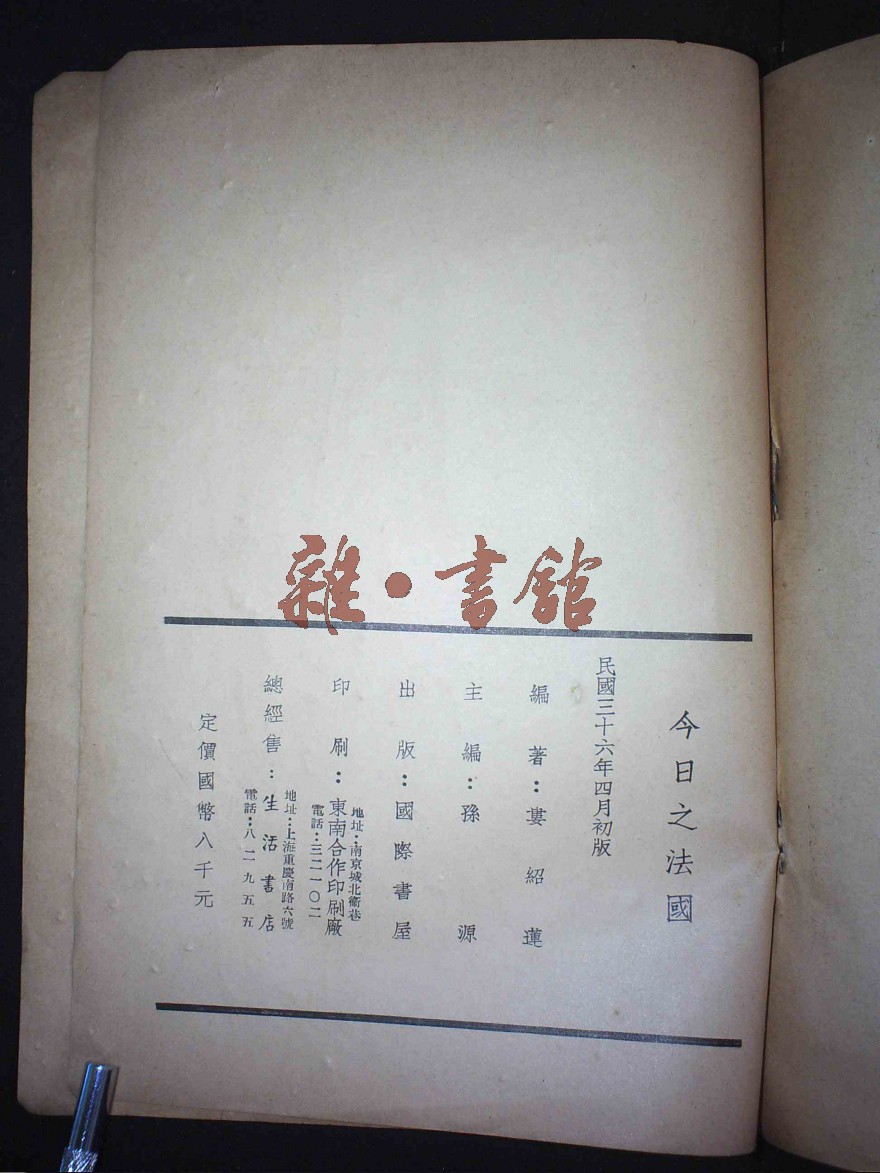 雜·書館
今日之法國
民國三十六年四月初版
編著：婁紹蓮
主編：孫源
出版：國際書屋
印刷：東南合作印刷廠
地址：南京城北衞巷
電話：三二一〇二
總經售：生活書店
地址：上海重慶南路六號
電話：八二九五五
定價國幣八千元